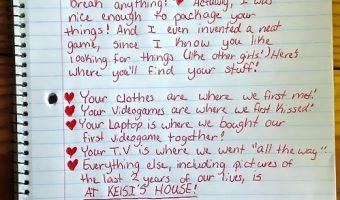 break anything! ♥ Actually, I was
nice enough to package your
things! And I even invented a neat
game, since I know you like
looking for things (like other girls!) Here's
where you'll find your stuff!
♥ Your clothes are where we first met!
♥ Your videogames are where we first kissed!
♥ Your Laptop is where we bought our
first videogame together!
♥ Your T.V is where we went "all the way".
♥ Everything else, including pictures of
the last 2 years of our lives, is
AT KEISI'S HOUSE!